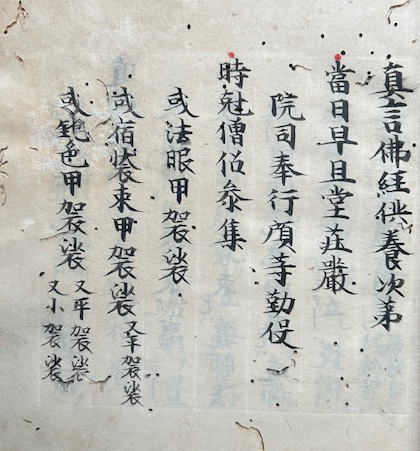 真言佛經供養次第
當日早旦堂莊嚴
院司奉行預等勤伇
時尅僧侶參集
或法眼甲袈裟
或宿裝束甲袈裟 又平袈裟
或鈍色甲袈裟 又平袈裟
又小袈裟